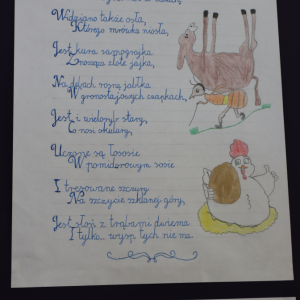 Widziano także osła,
Którego mrówka niosła,
Jest kura samograjka
Znosząca złote jajka,
Na dębach rosną jabłka
W gronostajowych czapkach,
Jest i wieloryb stary,
Co nosi okulary,
Uczone są łososie
W pomidorowym sosie
I tresowane szczury
Na szczycie szklanej góry,
Jest słoń z trąbami dwiema
I tylko... wysp tych nie ma.